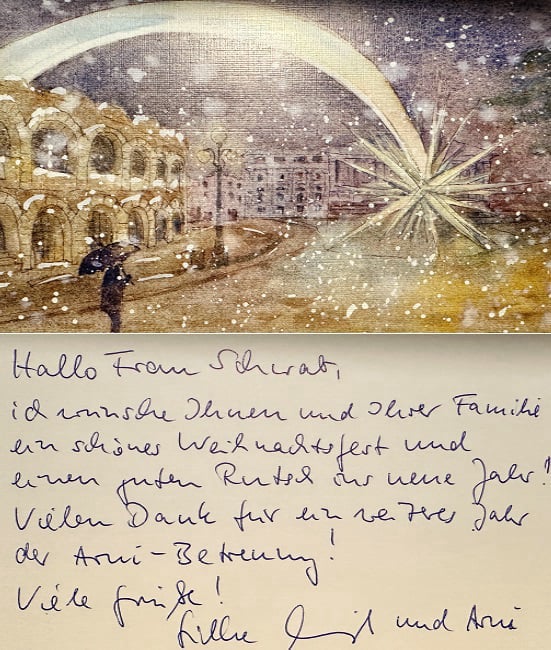 Hallo Frau Schwab,
ich wünsche Ihnen und Ihrer Familie
ein schönes Weihnachtsfest und
einen guten Rutsch ins neue Jahr!
Vielen Dank für ein weiteres Jahr
der Arni-Betreuung!
Viele Grüße!
Silke und Arni